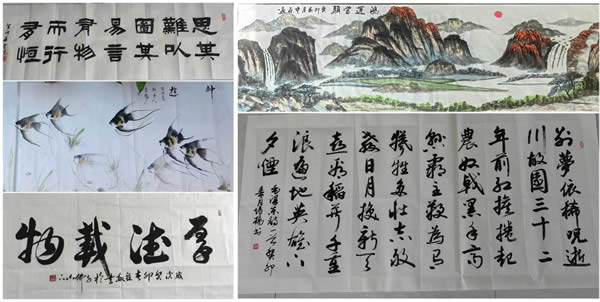 思其
難以
圖其
易言
有物
而行
有恒
神遊
厚德載物
鴻運當頭
别夢依稀咒逝
川故園三十二
年前红旗捲起
農奴戟黑手高
懸霸主鞭為有
犧牲多壯志敢
教日月換新天
喜看稻菽千重
浪遍地英雄下
夕煙